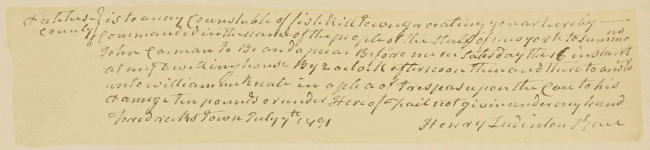 Dutchess } is to any Counstable of fishkild town greeating you are hereby
County } Commanded in the name of the people of the State of new york to summons
John Carman to Be and apear Before me on Saturday the instant
at my Dwelling house By 2 o clock afternoon then and there to answer
unto William mckneale in a plea of trespas upon the Case to his
damage ten pounds or under Here of fail not given under my hand
fredricks town July 7th 1791 Henry Ludinton Squier